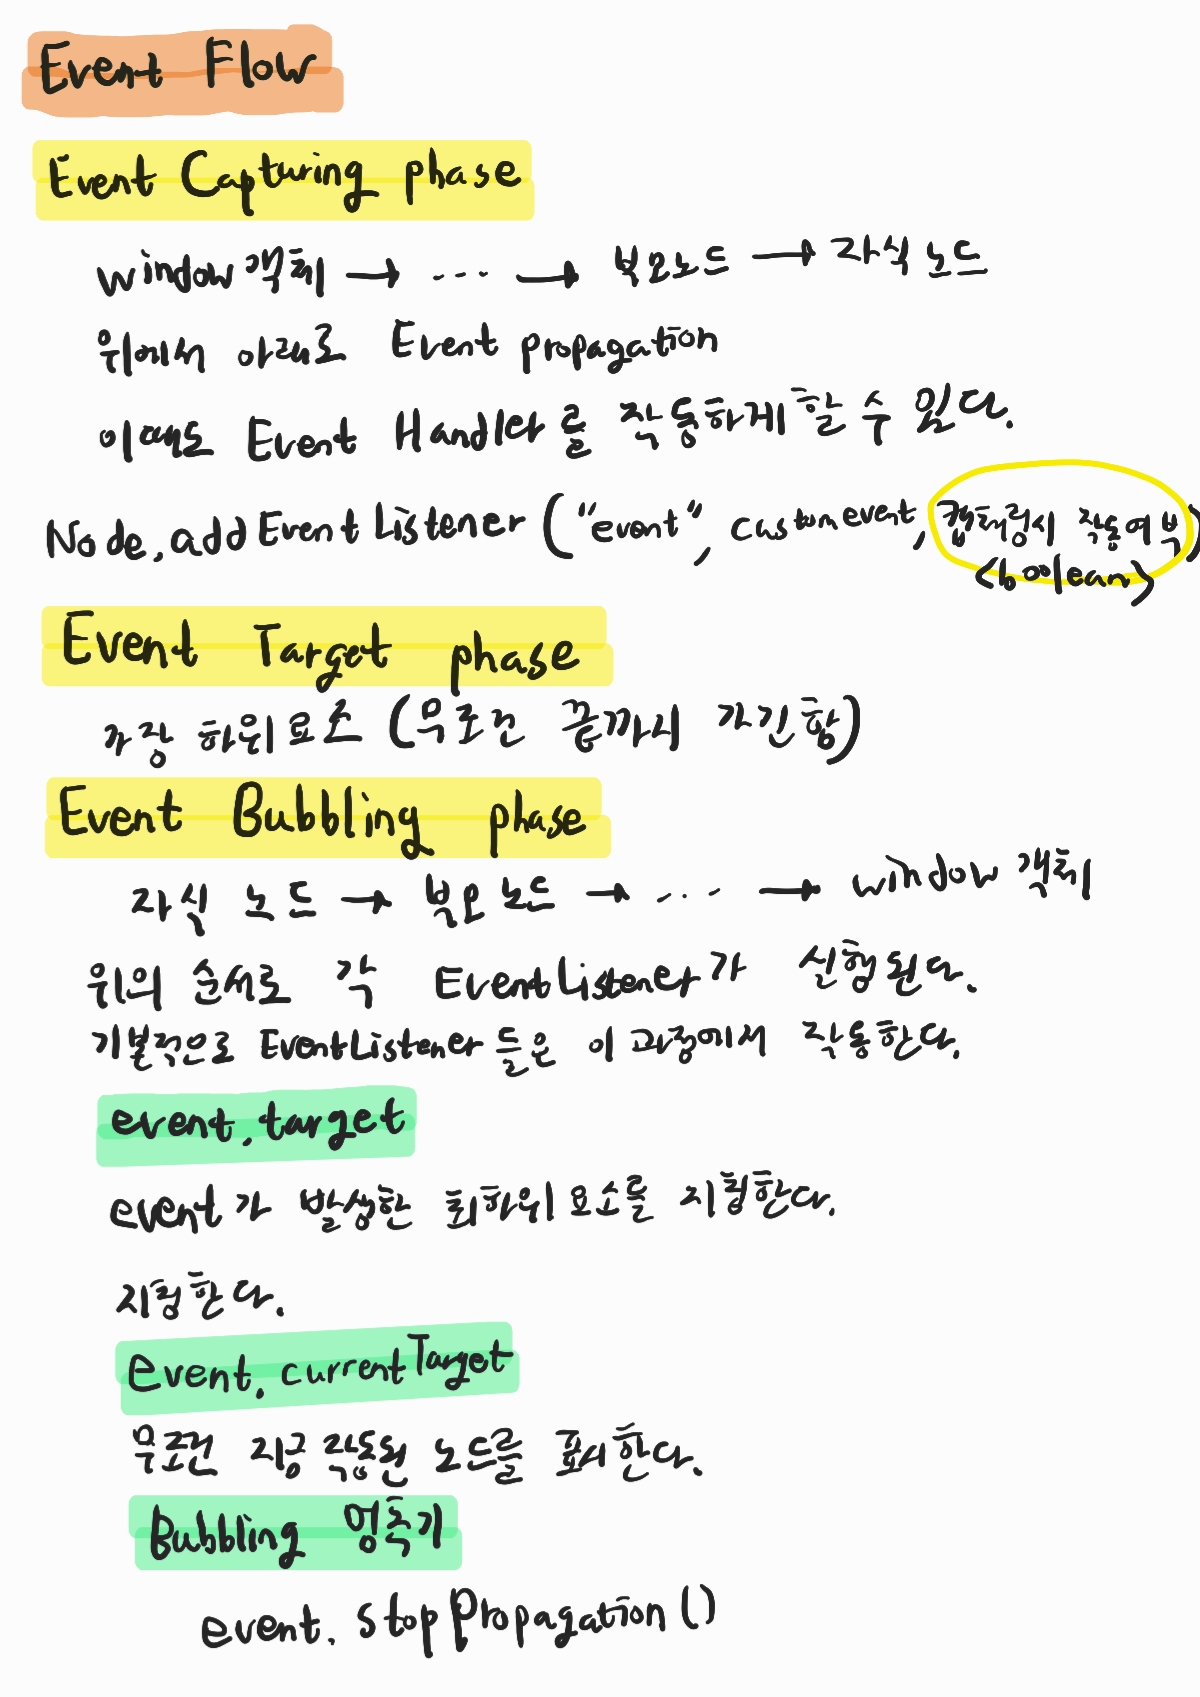 Event Flow
Event Capturing phase
window객체 → ... → 부모노드 → 자식 노드
위에서 아래로 Event propagation
이때도 Event Handler를 작동하게 할 수 있다.
Node.addEventListener("event", customevent, 캡쳐링시 작동여부)
<boolean>
Event Target phase
가장 하위요소 (무조건 끝까지 가긴함)
Event Bubbling phase
자식 노드 → 부모노드 → ... → window 객체
위의 순서로 각 EventListener가 실행된다.
기본적으로 EventListener들은 이 과정에서 작동한다.
event.target
event가 발생한 최하위 요소를 지칭한다.
지칭한다.
event.currentTarget
무조건 지금 작동된 노드를 표시한다.
Bubbling 멈추기
event.stopPropagation()